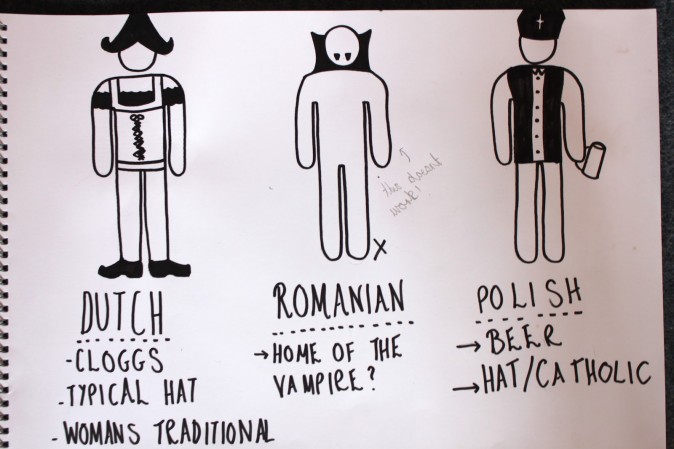 this doesnt
work!
X
DUTCH
-CLOGGS
-TYPICAL HAT
-WOMANS TRADITIONAL
ROMANIAN
→HOME OF THE
VAMPIRE?
POLISH
→BEER
→HAT/CATHOLIC